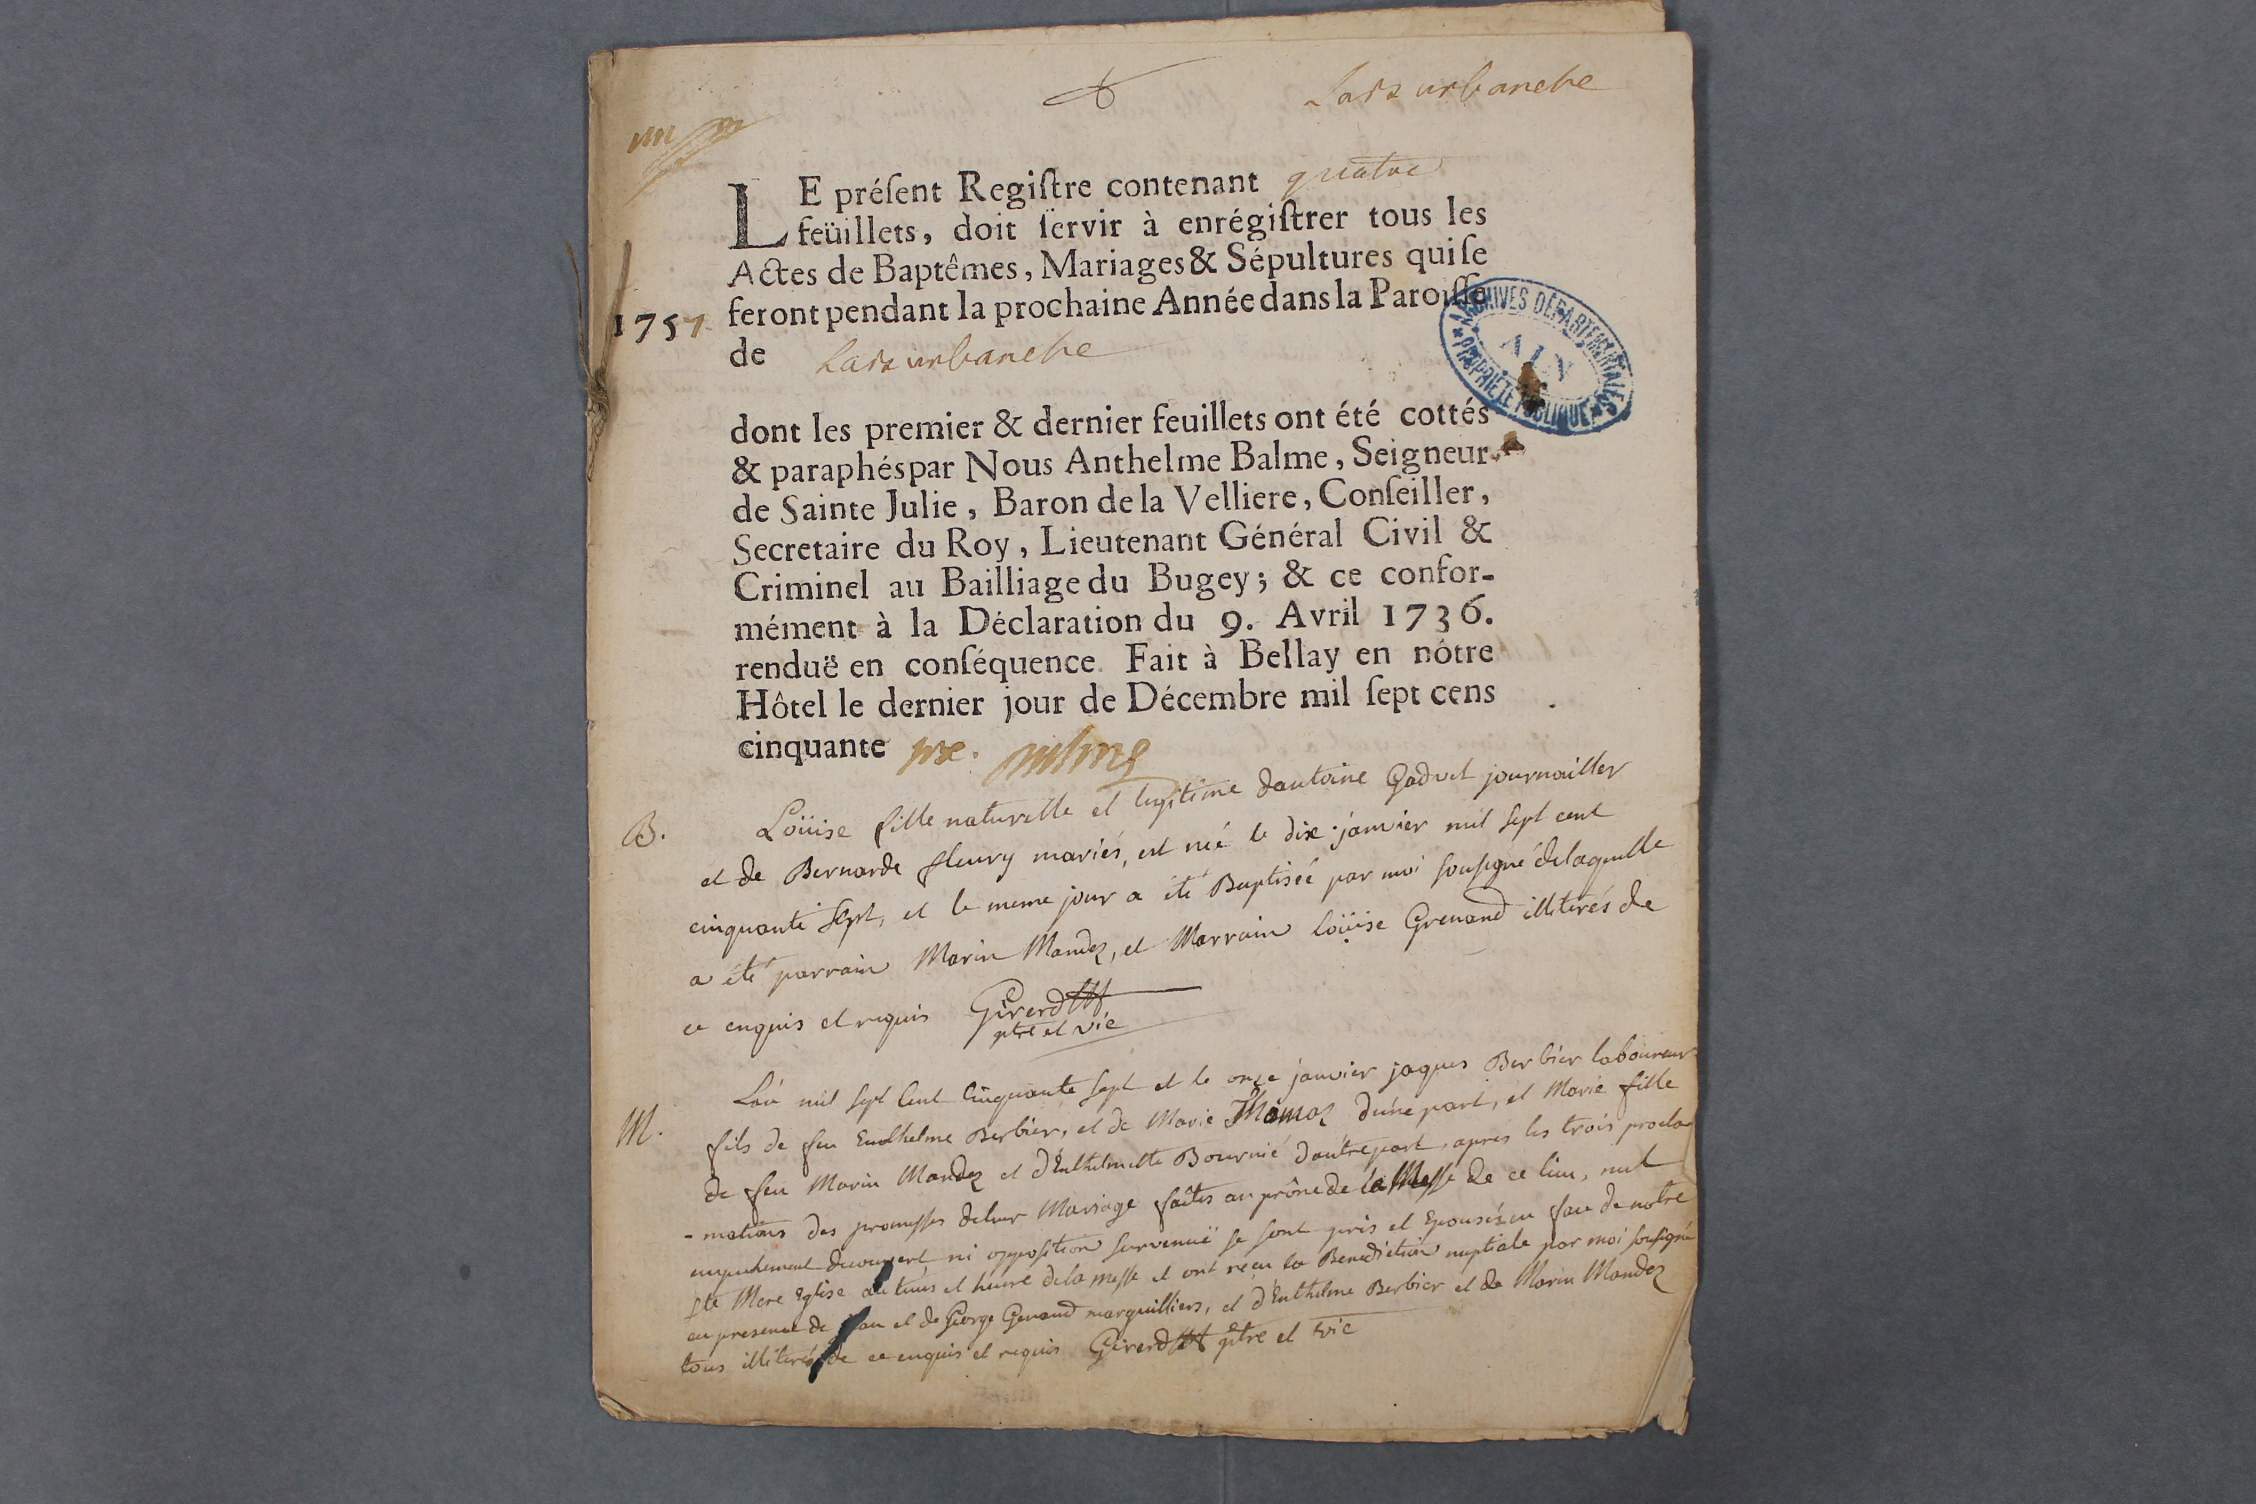 LE préſent Regiſtre contenant quatre
feüillets, doit ſervir à enrégiſtrer tous les
Actes de Baptêmes, Mariages & Sépultures qui ſe
feront pendant la prochaine Année dans la Paroiſſe
1757
de
ARCHIVES DÉPARTEMENTALES
AIN
PROPRIÉTÉ PUBLIQUE
dont les premier & dernier feuillets ont été cottés
& paraphés par Nous Anthelme Balme, Seigneur
de Sainte Julie, Baron de la Velliere, Conſeiller,
Secretaire du Roy, Lieutenant Général Civil &
Criminel au Bailliage du Bugey; & ce confor-
mément à la Déclaration du 9. Avril 1736.
renduë en conſéquence. Fait à Bellay en nôtre
Hôtel le dernier jour de Décembre mil ſept cens
cinquante
B. Loüise fille naturelle et legitime dantoine journailler
et de Bernarde fleury mariés, est neé le dix janvier mil sept cent
cinquante sept, et le meme jour a été Baptiséé par moi sousigné delaquelle
a été parrain Marin Mandez, et Marrain loüise Grenand illiterés de
ce enquis et requis Girerd
ptre et vic
M. Lan mil sept cent Cinquante sept et le onze janvier jaques Berbier laboureur
fils de feu Enthelme Berbier, et de Marie Thomaz dune part, et Marie fille
de feu Marin Mandez et d'Enthelmette Bournié dautre part, apres les trois procla
-mations des promesses deleur Mariage faites au prône de la Messe de ce lieu, nul
empechement decouvert ni opposition survenuë se sont pris et Epousés en face de notre
ste Mere Eglise au tems et heure dela messe et ont reçu la Benediction nuptiale par moi sousigné
en presence de et de George Genand marguilliers, et d'Enthelme Berbier et de Marin Mandez
tous illiterés de ce enquis et requis Girerd ptre et vic